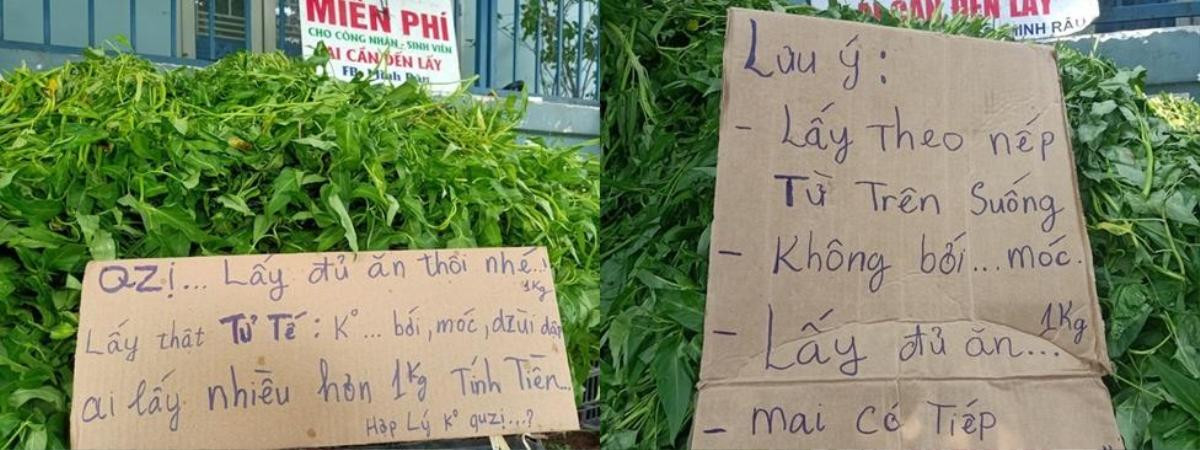 MIỄN PHÍ
CHO CÔNG NHÂN - SINH VIÊN
AI CẦN ĐẾN LẤY
FB: Minh Râu
QZị... Lấy đủ ăn thôi nhé..!
1Kg
Lấy thật Tử Tế: K°... bới, móc, dzùi dập
ai lấy nhiều hơn 1Kg Tính Tiền...
Hợp Lý K° quzị...?
AI CẦN ĐẾN LẤY
MINH RÂU
Lưu ý:
- Lấy Theo nếp
Từ Trên Xuống
- Không bới... móc.
- Lấy đủ ăn... 1Kg
- mai có Tiếp